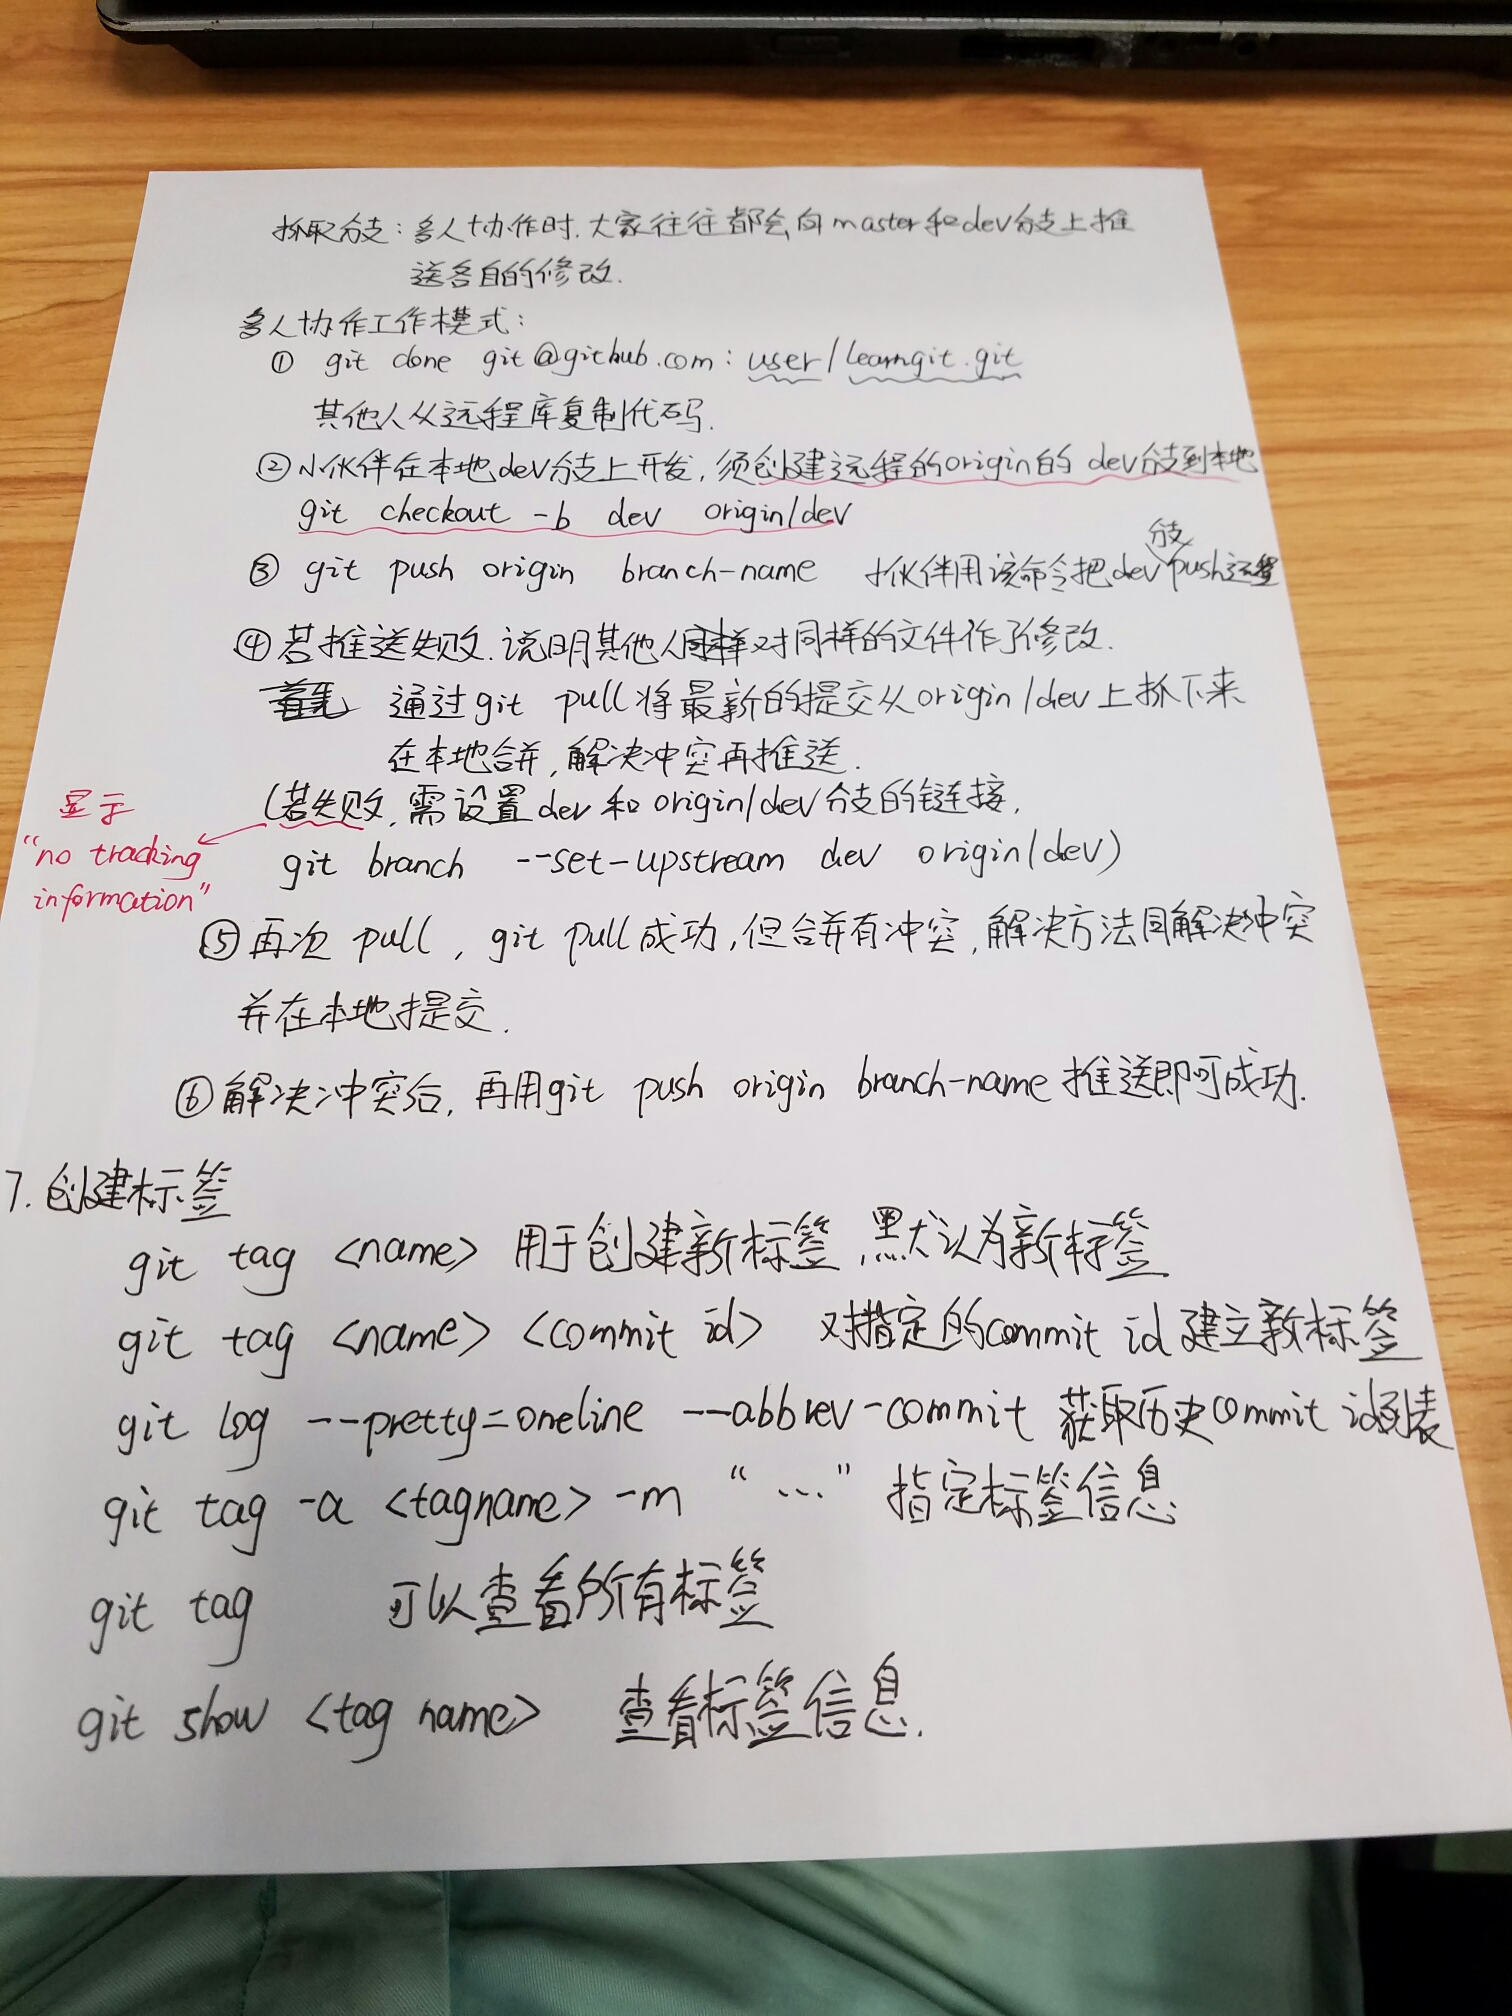 抓取分支：多人协作时.大家往往都会向master和dev分支上推
送各自的修改.
多人协作工作模式：
① git clone git@github.com：user/learngit.git
其他人从远程库复制代码.
②小伙伴在本地dev分支上开发，须创建远程的origin的 dev分支到本地
git checkout -b dev origin/dev
③ git push origin branch-name 小伙伴用该命令把dev分支push远程
④若推送失败.说明其他人对同样的文件作了修改.
通过git pull将最新的提交从origin/dev上抓下来
在本地合并,解决冲突再推送.
(若失败,需设置dev和origin/dev分支的链接,
显示
"no tracking
information"
git branch --set-upstream dev origin/dev)
⑤再次 pull, git pull成功,但合并有冲突,解决方法同解决冲突
并在本地提交.
⑥解决冲突后,再用git push origin branch-name推送即可成功.
7.创建标签
git tag <name> 用于创建新标签,默认为新标签
git tag <name> <commit id> 对指定的commit id 建立新标签
git log --pretty=oneline --abbrev-commit 获取历史commit id列表
git tag -a <tagname> -m "..." 指定标签信息
git tag 可以查看所有标签
git show <tag name> 查看标签信息.